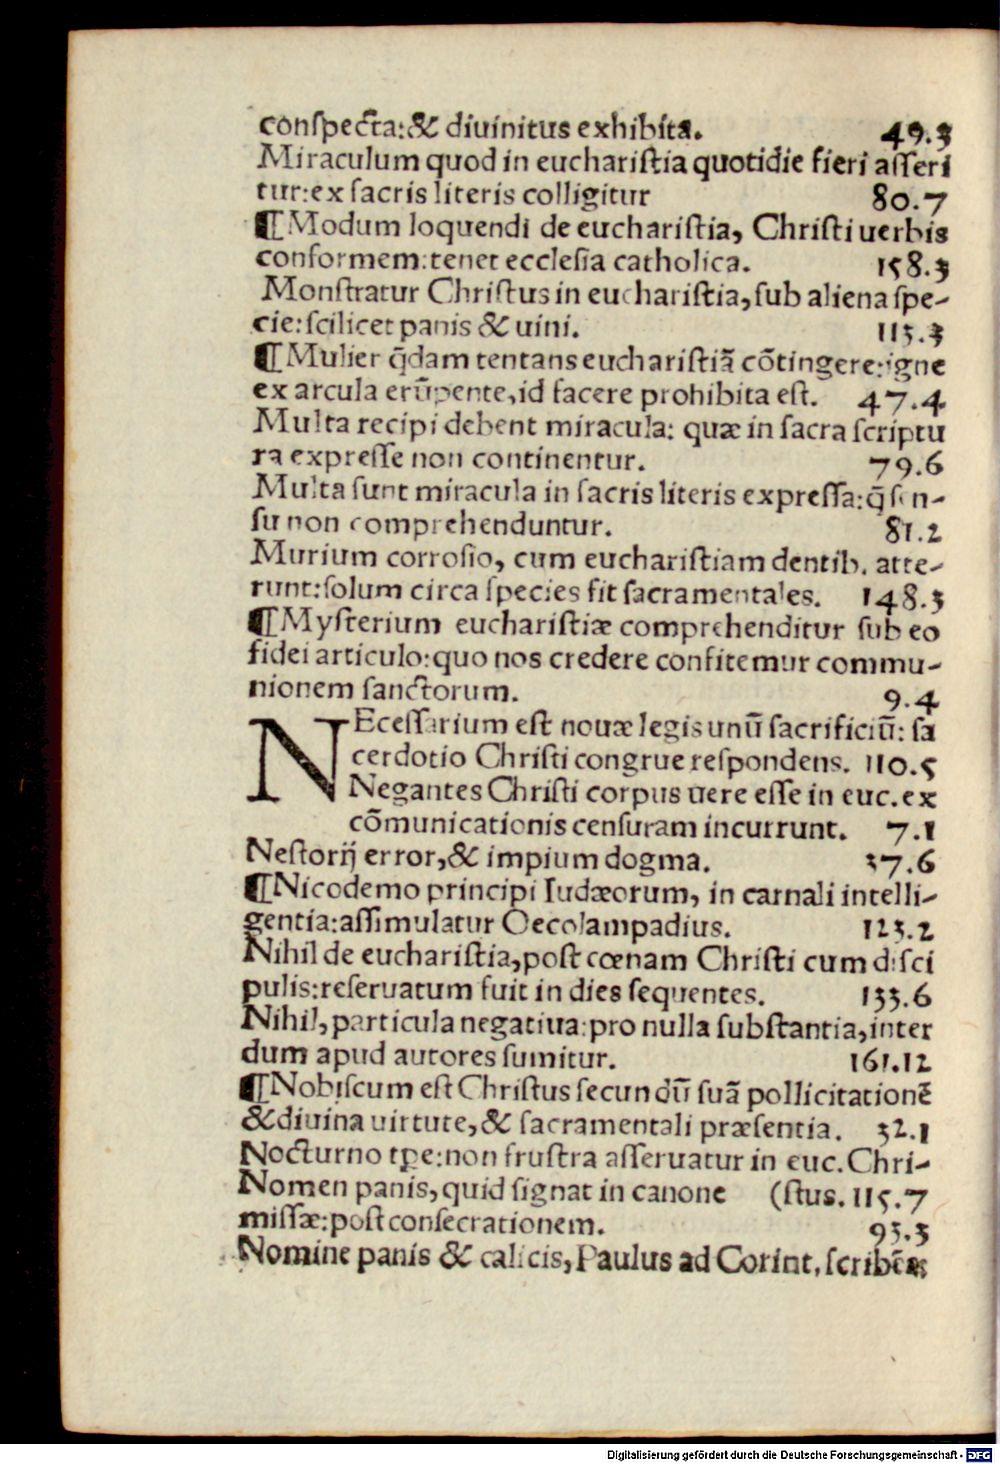 conſpecta:& diuinitus exhibita. 49.3
Miraculum quod in euchariſtia quotidie fieri aſſeri
tur:ex ſacris literis colligitur 80.7
¶Modum loquendi de euchariſtia, Chriſti uerbis
conformem:tenet eccleſia catholica. 158.3
Monſtratur Chriſtus in euchariſtia, ſub aliena ſpe-
cie:ſcilicet panis & uini. 113.3
¶Mulier q̄dam tentans euchariſtiā cōtingere:igne
ex arcula erūpente,id facere prohibita eſt. 47.4
Multa recipi debent miracula: quæ in ſacra ſcriptu
ra expreſſe non continentur. 79.6
Multa ſunt miracula in ſacris literis expreſſa:q̄ ſen-
ſu non comprehenduntur. 81.2
Murium corroſio, cum euchariſtiam dentib. atte-
runt:ſolum circa ſpecies fit ſacramentales. 148.3
¶Myſterium euchariſtiæ comprehenditur ſub eo
fidei articulo:quo nos credere confitemur commu-
nionem ſanctorum. 9.4
NEceſſarium eſt nouæ legis unū ſacrificiū: ſa
cerdotio Chriſti congrue reſpondens. 110.5
Negantes Chriſti corpus uere eſſe in euc. ex
cōmunicationis cenſuram incurrunt. 7.1
Neſtorij error,& impium dogma. 37.6
¶Nicodemo principi Iudæorum, in carnali intelli-
gentia:aſſimulatur Oecolampadius. 123.2
Nihil de euchariſtia,poſt cœnam Chriſti cum diſci
pulis:reſeruatum fuit in dies ſequentes. 133.6
Nihil, particula negatiua:pro nulla ſubſtantia,inter
dum apud autores ſumitur. 161.12
¶Nobiſcum eſt Chriſtus ſecundū ſuā pollicitationē
& diuina uirtute,& ſacramentali præſentia. 32.1
Nocturno tpe:non fruſtra aſſeruatur in euc. Chri-
Nomen panis, quid ſignat in canone (ſtus. 115.7
miſſæ:poſt conſecrationem. 93.3
Nomine panis & calicis, Paulus ad Corint. ſcribēs:
Digitalisierung gefördert durch die Deutsche Forschungsgemeinschaft - DFG